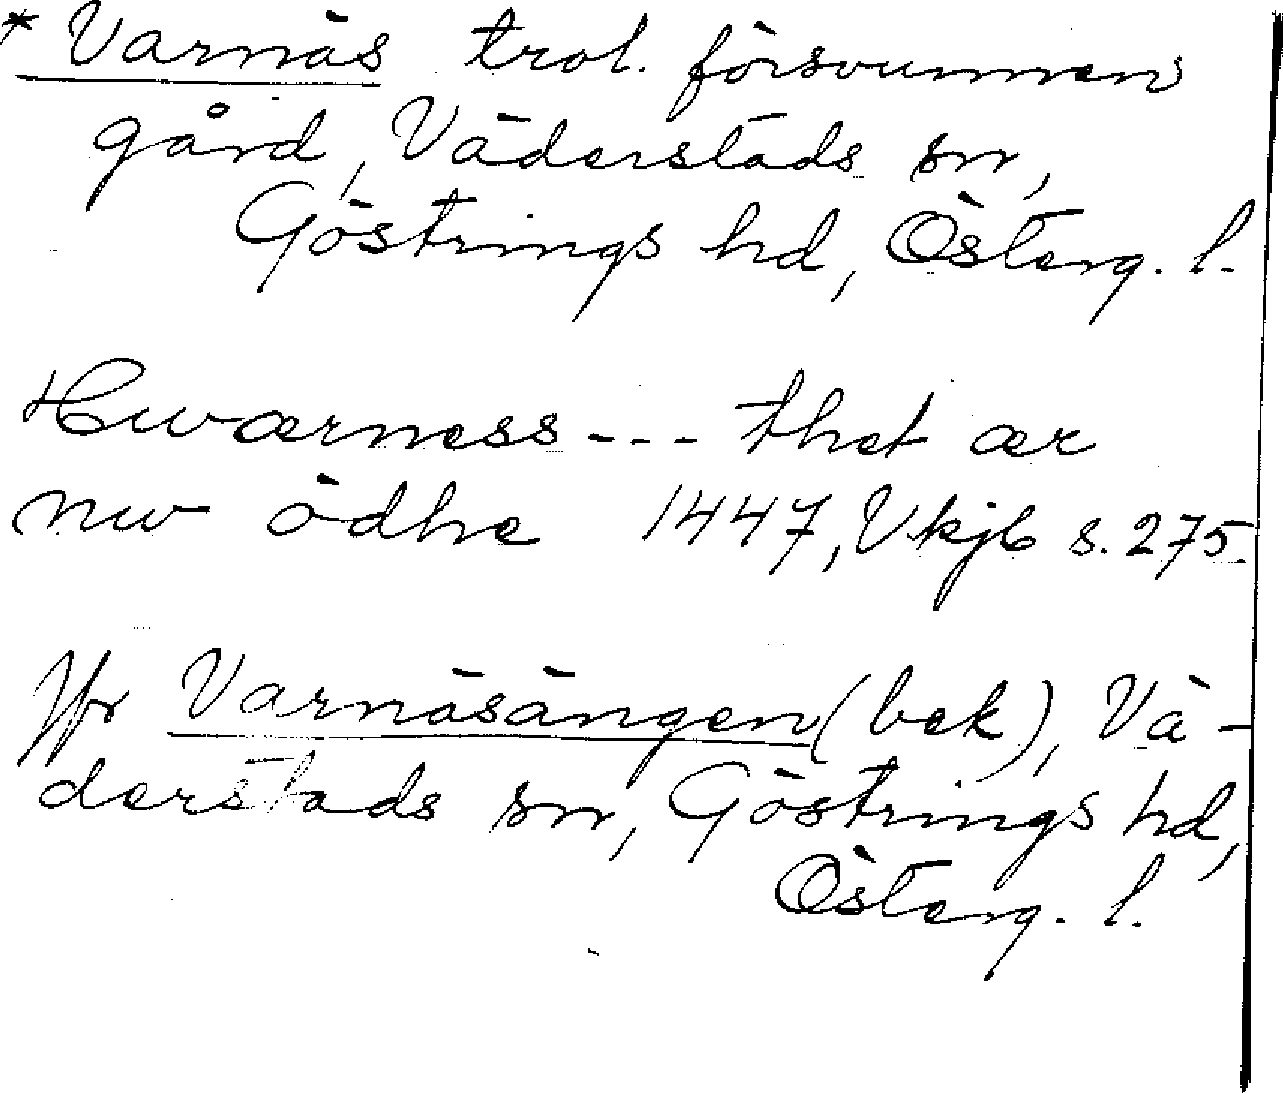 * Varnäs trol. försvunnen
gård, Väderstads sn,
Göstrings hd, Österg. l.
Hwærness --- thet ær
nw ödhe 1447, Vkjb s. 275.
Jfr Varnäsängen (bek), Vä-
derstads sn, Göstrings hd,
Österg. l.